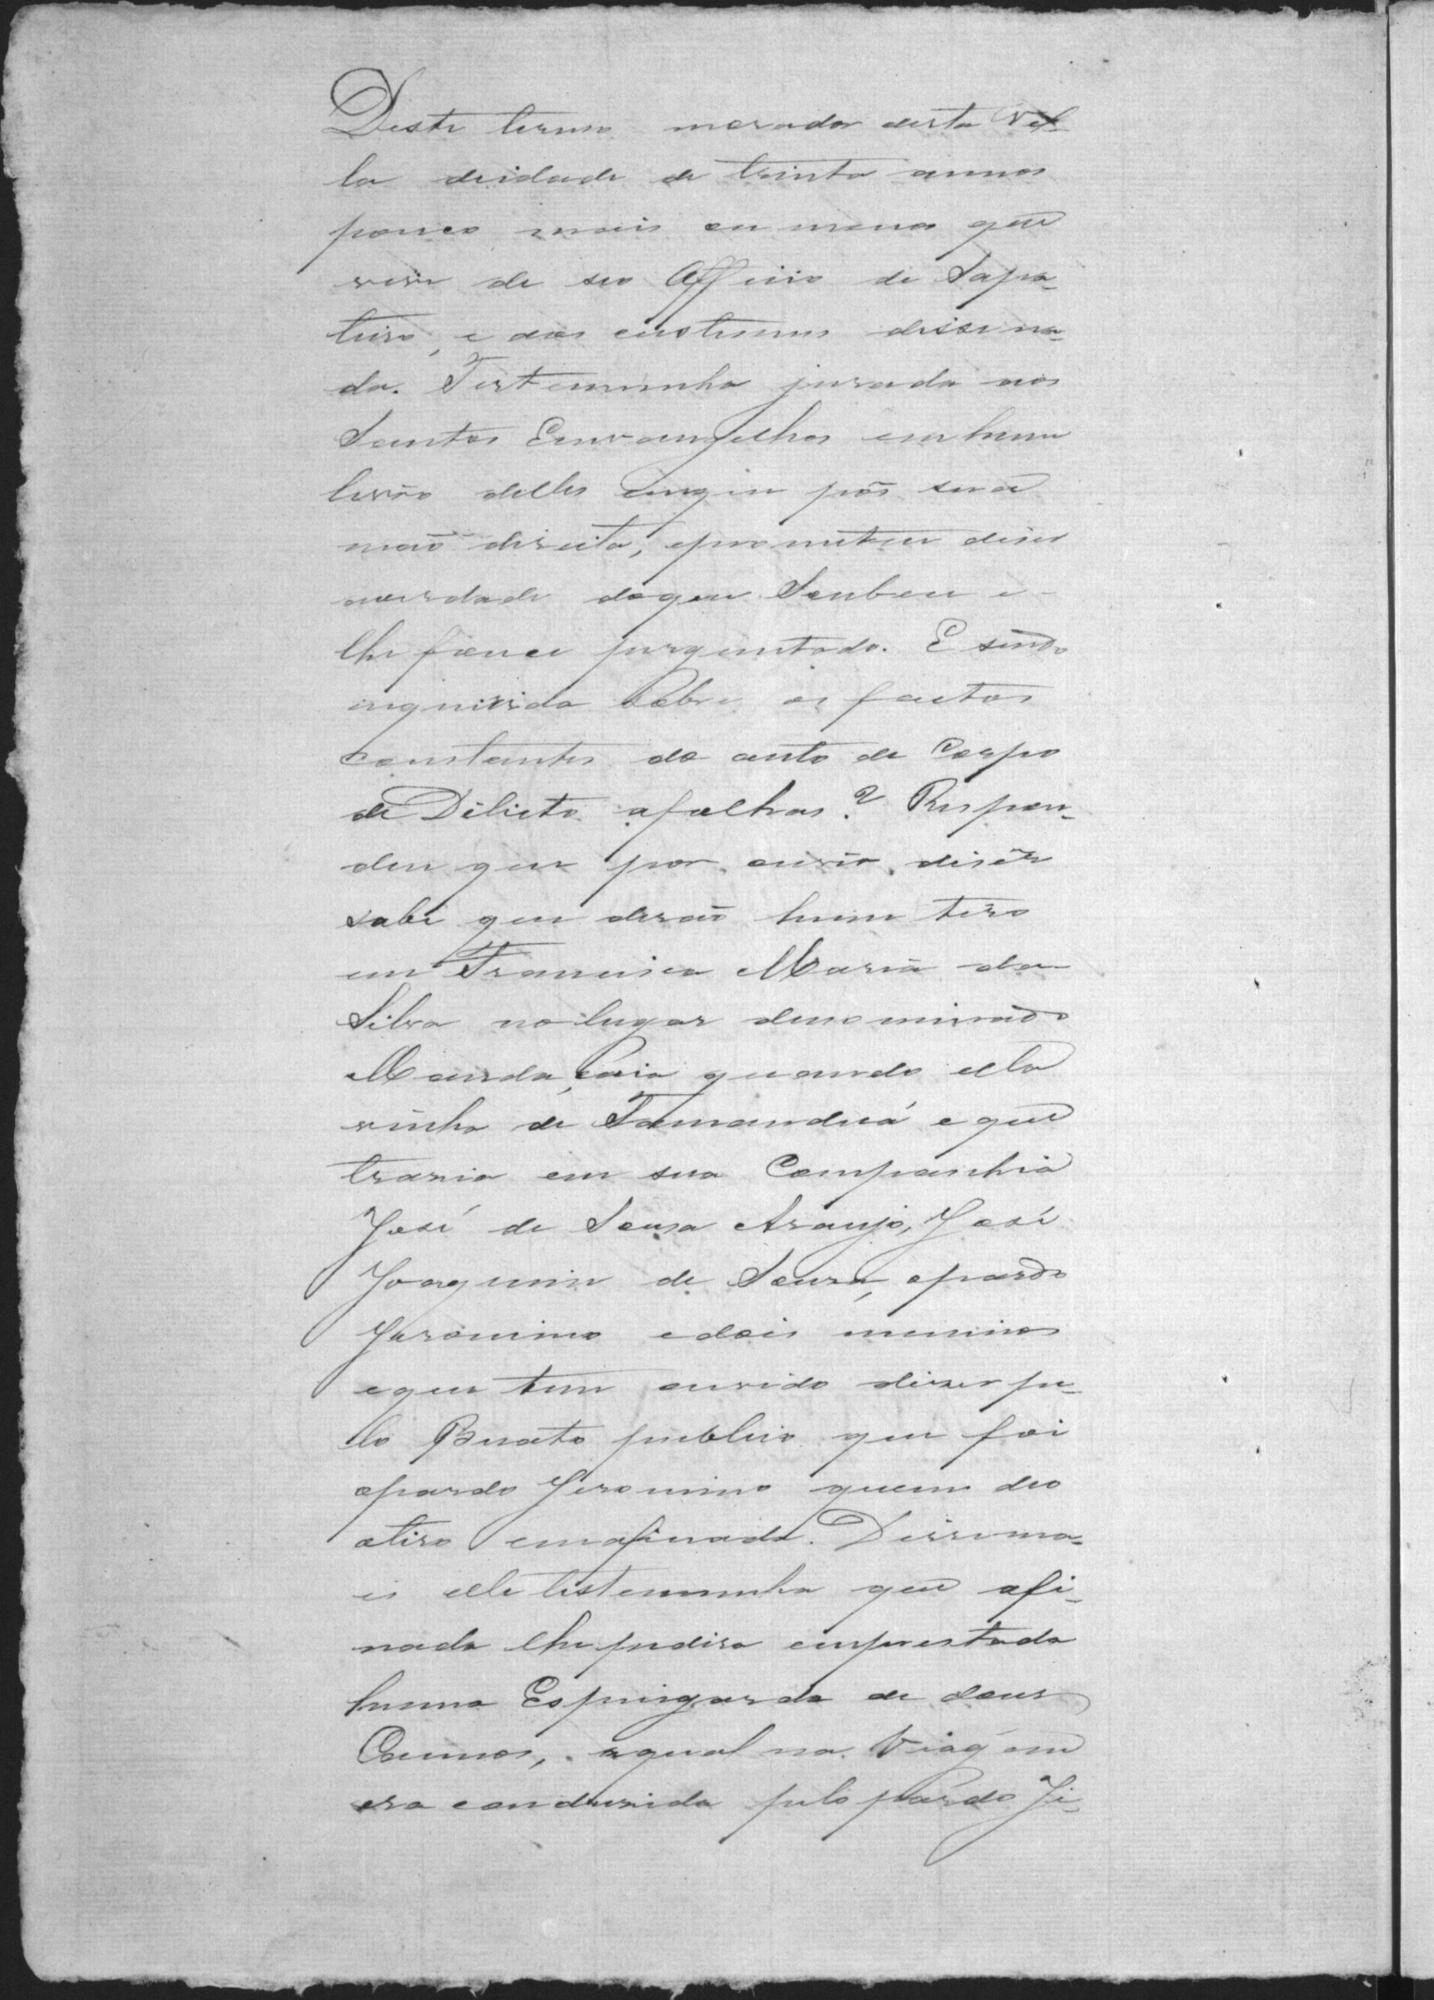 Deste termo morador desta Vil-
la deidade de trinta annos
pouco mais ou menos que
vive de seo Officio de Sapa-
teiro, e dos custumes disse na-
da. Testemunha jurada aos
Santos Envangelhos em hum
livro delles emque pôs sua
maõ direita, eprometeu diser
averdade doque Soubeu e
lhe fouce perguntado. E sendo
inquirida Sobre os factos
constantes do auto de Corpo
de Delicto afolhas? Respon-
deu que por ouvir diser
sabe que deraõ hum tiro
em Francisca Maria da
Silva no lugar denominado
Manda, saia quando ella
vinha de Tamanduá e que
trazia em sua Companhia
José de Sousa Araujo, José
Joaquim de Sousa, opardo
Jeronimo edois meninos
eque tem ouvido dizer pe-
lo Buato publico que foi
opardo Jeronimo quem deo
otiro emafinada. Disse ma-
is elle testemunha que afi-
nada lhe pedira emprestada
huma Espingarda de dous
Cannos, aqual na Viagem
era condusida pelo pardo Ji-